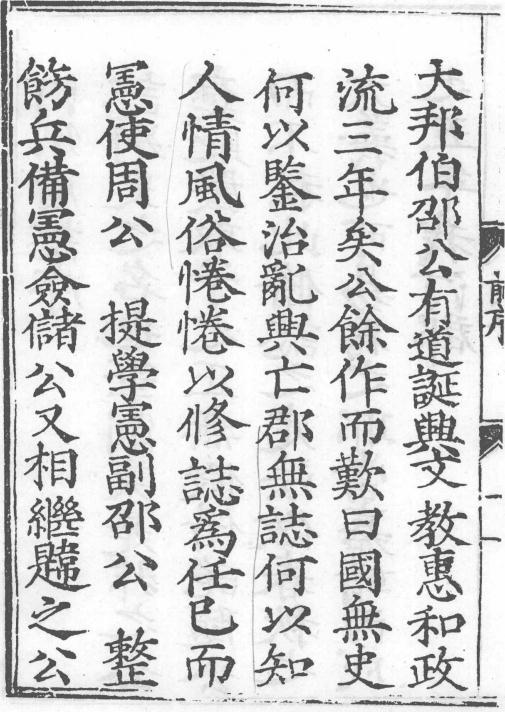 前序
大邦伯邵公有道誕興文教惠和政
流三年矣公餘作而歎曰國無史
何以鑒治亂興亡郡無誌何以知
人情風俗惓惓以修誌爲任已而
憲使周公　提學憲副邵公　整
飭兵備憲僉儲公又相繼韙之公